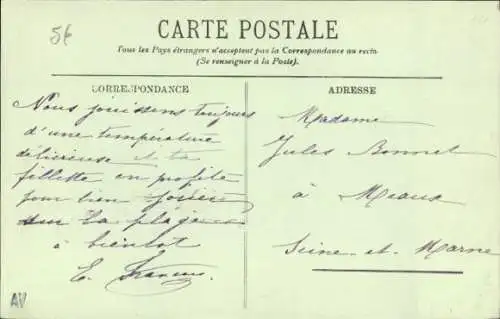 5€
CARTE POSTALE
Tous les Pays étrangers n'acceptent pas la Correspondance au recto
(Se renseigner à la Poste).
CORRESPONDANCE
Nous jouissons toujours
d'une température
délicieuse et ta
fillette en profite
pour bien jouer
sur la plage
à bientôt
E.
ADRESSE
Madame
Jules Bonnet
à Meaux
Seine-et-Marne
AV